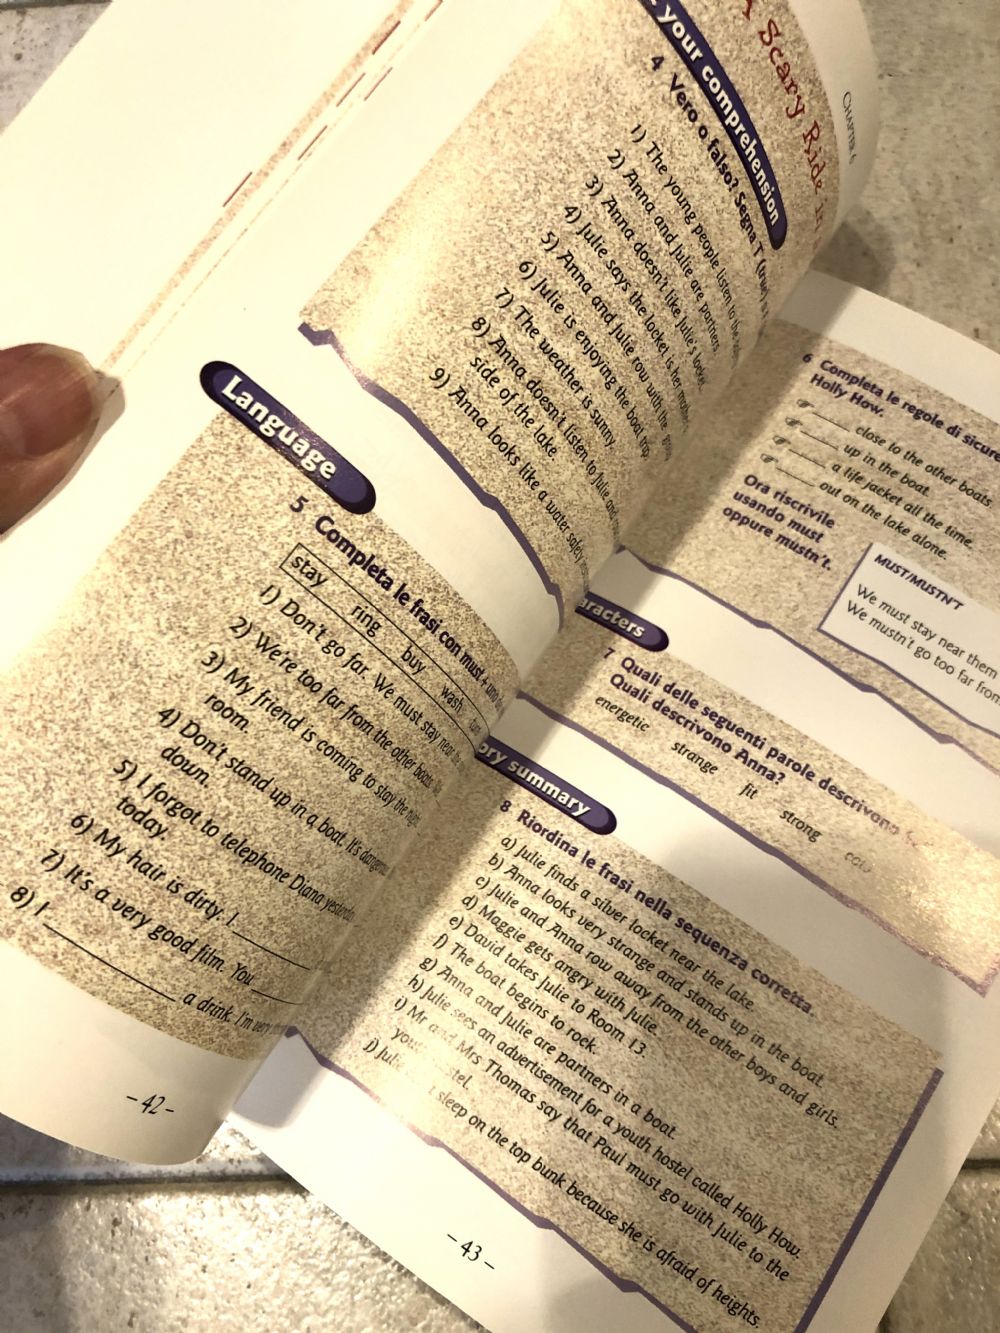 CHAPTER 6
A Scary Ride in
your comprehension
4 Vero o falso? Segna T (true)
1) The young people listen to the
2) Anna and Julie are partners
3) Anna doesn't like Julie's locket
4) Julie says the locket is her mother's
5) Anna and Julie row with the
6) Julie is enjoying the boat trip
7) The weather is sunny.
8) Anna doesn't listen to Julie and
side of the lake.
9) Anna looks like a water safety
Language
5 Completa le frasi con must +
stay ring buy wash
1) Don't go far. We must stay near
2) We're too far from the other boats.
3) My friend is coming to stay the night.
room.
4) Don't stand up in a boat. It's dangerous.
down.
5) I forgot to telephone Diana yesterday.
today.
6) My hair is dirty. I
7) It's a very good film. You
8) I a drink. I'm very
- 42 -
6 Completa le regole di
Holly How.
close to the other boats
up in the boat.
a life jacket all the time.
out on the lake alone.
Ora riscrivile
usando must
oppure mustn't.
MUST/MUSTN'T
We must stay near them
We mustn't go too far from
aracters
7 Quali delle seguenti parole descrivono
Quali descrivono Anna?
energetic strange fit strong
ory summary
8 Riordina le frasi nella sequenza corretta.
a) Julie finds a silver locket near the lake.
b) Anna looks very strange and stands up in the boat.
c) Julie and Anna row away from the other boys and girls.
d) Maggie gets angry with Julie.
e) David takes Julie to Room 13.
f) The boat begins to rock.
g) Anna and Julie are partners in a boat.
h) Julie sees an advertisement for a youth hostel called Holly How.
i) Mr and Mrs Thomas say that Paul must go with Julie to the
j) Julie sleep on the top bunk because she is afraid of heights.
- 43 -